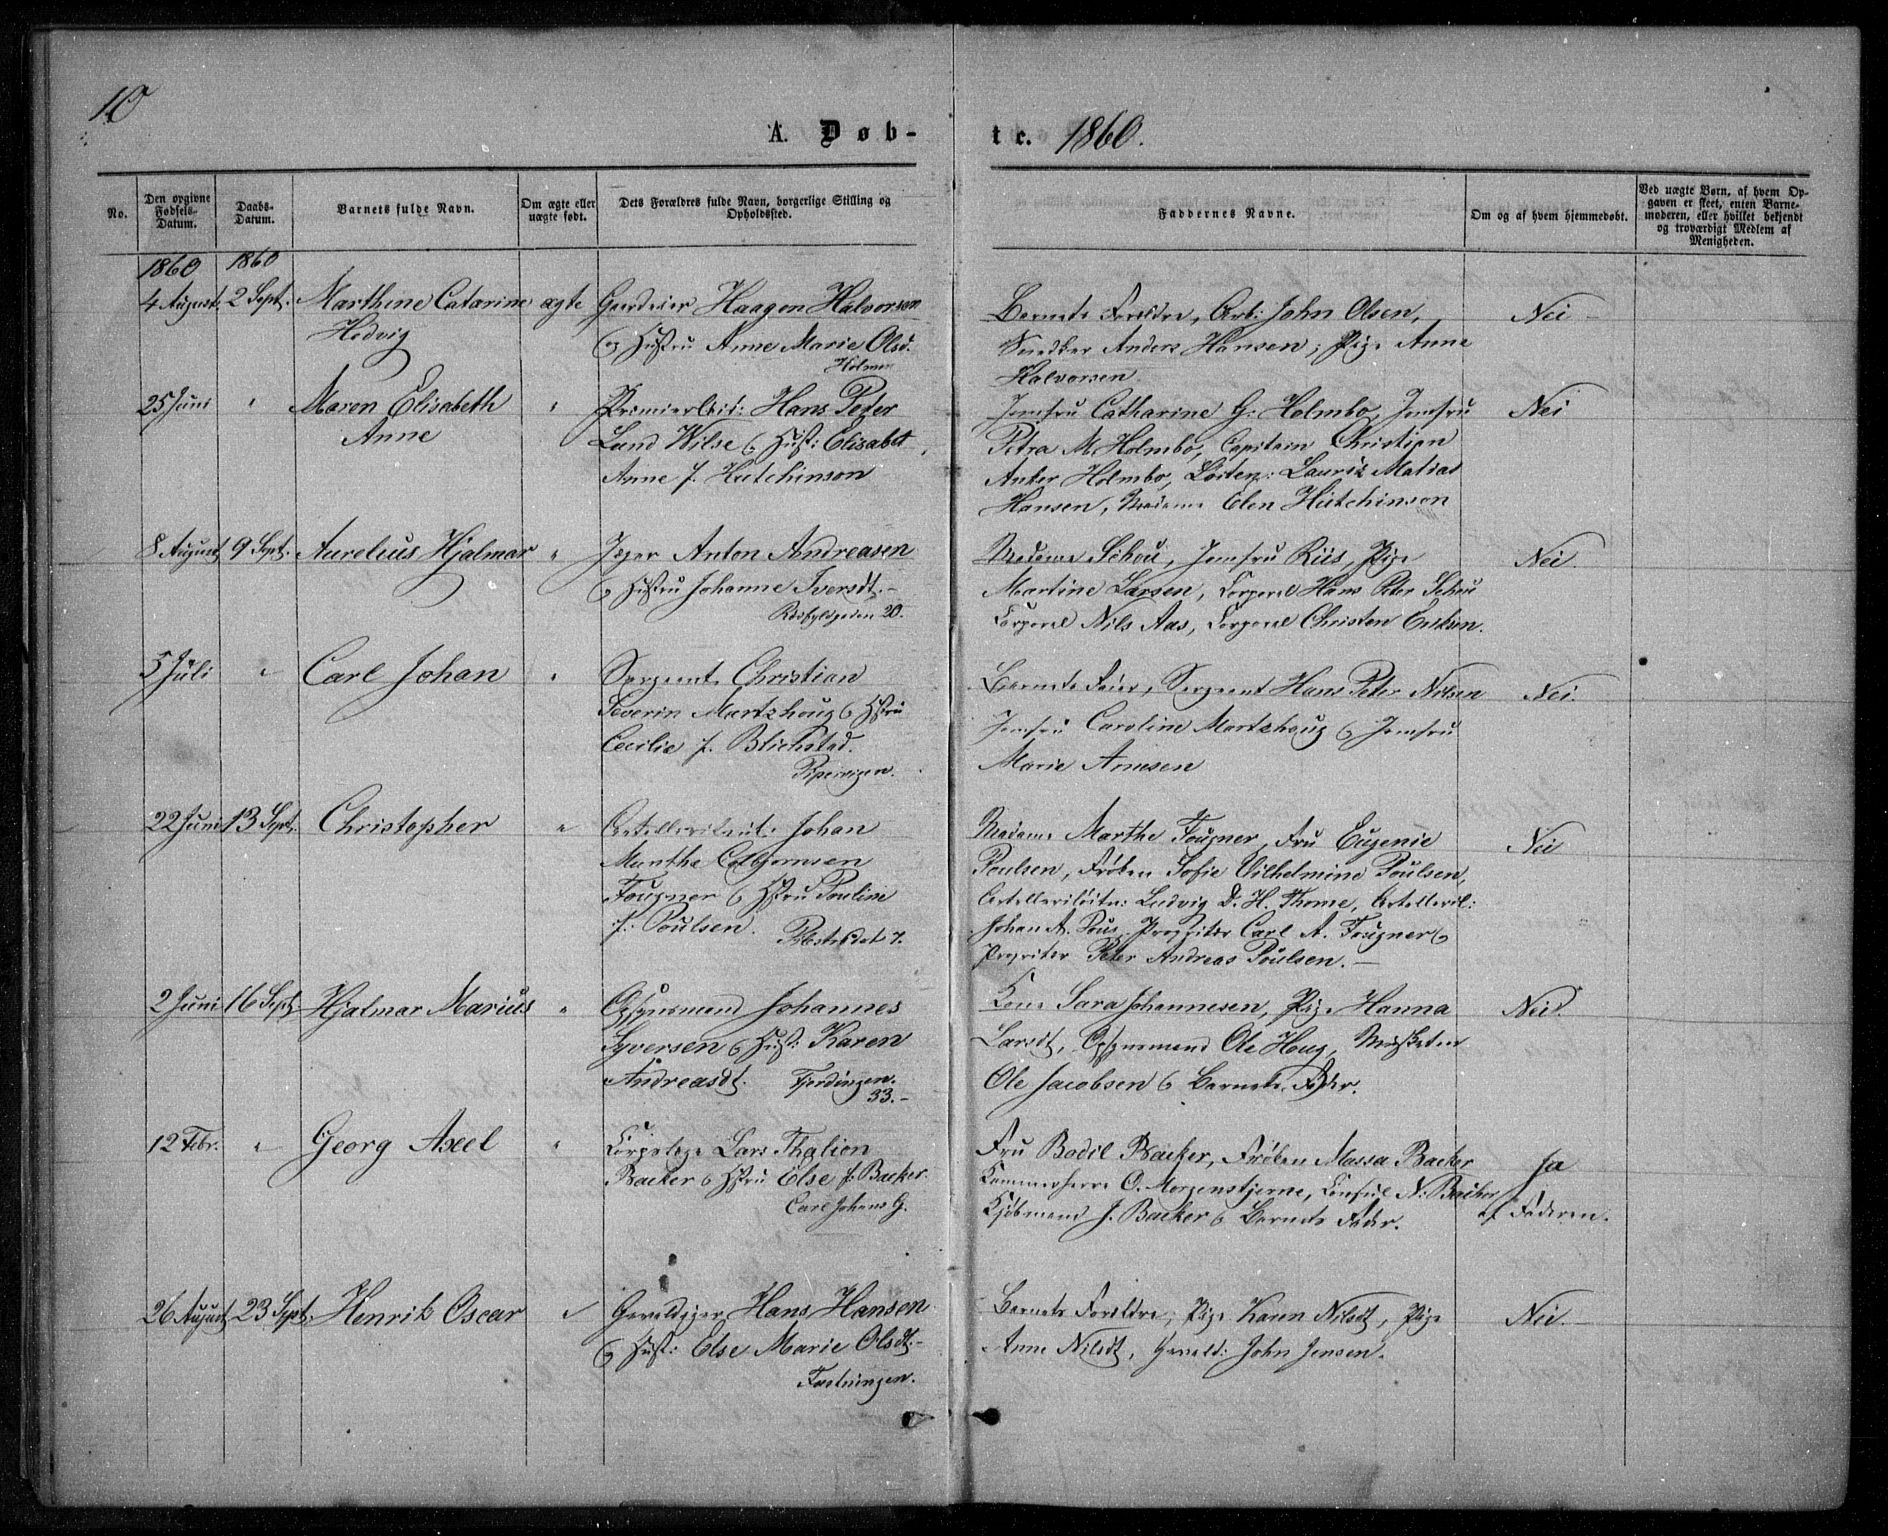 10
A. Døb-
te. 1860.
No.
Den opgivne Fødsels-Datum.
Daabs-Datum.
Barnets fulde Navn.
Om ægte eller uægte født.
Dets Forældres fulde Navn, borgerlige Stilling og Opholdssted.
Faddernes Navne.
Om og af hvem hjemmedøbt.
Ved uægte Børn, af hvem Opgaven er skeet, enten Barnemoderen, eller hvilket bekjendt og troværdigt Medlem af Menigheden.
1860 1860
4 August 2 Sept. Marthine Catarine ægte Haagen Halvorsen
Hedvig
& Hustru Anne Marie Olsd.
Holmen
Barnets Forældre, Arb: John Olsen, Nei
Snedker Anders Hansen, Pige Anne
Halvorsen
25 Juni " Maren Elisabeth " Premierlieut: Hans Peter
Anne
Lund Wilse & Hust: Elisabet
Anne f. Hutchinson
Jomfru Catharine G. Holmbo, Jomfru Nei
Petra M. Holmbo, Capitain Christian
Anker Holmbo, Løiten: Lauritz Matias
Hansen, Madame Elen Hutchinson
8 August 9 Sept. Aurelius Hjalmar " Jæger Anton Andreasen
& Hustru Johanne Iversdt.
20.
Madame Schou, Jomfru Riis, Pige Nei.
Martine Larsen, Corporal Hans Peter Schou
Corporal Nils Aas, Corporal Christen Eriksen.
5 Juli " Carl Johan " Sergeant Christian
Severin Martzhoug & Hstru
Cecilie f. Blichstad.
Pipervigen.
Barnets Fader, Sergeant Hans Peter Nilsen Nei.
Jomfru Caroline Martzhoug & Jomfru
Marie Arnesen
22 Juni 13 Sept. Christopher " Johan
Munthe Cathjornsen
Fougner & Hstru Pouline
f. Poulsen. 7.
Madame Marthe Fougner, Fru Eugenie Nei
Poulsen, Frøken Sofie Vilhelmine Poulsen,
Artilleriløitn: Ludvig D. H. Thome, Artilleril:
Johan A. Pous, Propritær Carl A. Fougner &
Propritær Peter Andreas Poulsen.
2 Juni 16 Sept. Hjalmar Marius " Opsynsmand Johannes
Syversen & Hust: Karen
Andreasdt. Fjerdingen.
33.
Kone Sara Johannesen, Pige Hanna Nei.
Larsdt, Opsynsmand Ole Houg, Musketer
Ole Jacobsen & Barnets Fader.
12 Febr. " Georg Axel " Corpslæge Lars Thalion
Backer & Hstru Else f. Backer.
Carl Johans G.
Fru Bodil Backer, Frøken Massa Backer Ja
Kammerherre O. Morgenstjerne, Consul N. Backer af Faderen.
Kjøbmand J. Backer & Barnets Fader.
26 August 23 Sept. Henrik Oscar " Gevaldiger Hans Hansen
& Hust: Else Marie Olsdt.
Fæstningen.
Barnets Forældre, Pige Karen Nilsdt, Pige Nei.
Anne Nilsdt, Gevald: John Jensen.